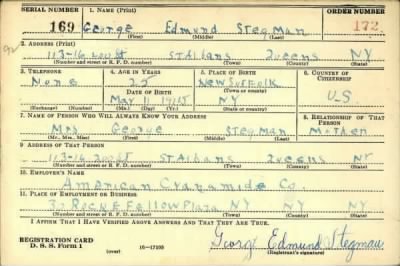 SERIAL NUMBER 1. NAME (Print) ORDER NUMBER
169 George Edmund Stegman 172
(First) (Middle) (Last)
2. ADDRESS (Print)
113-16 200 St St Albans Queens NY
(Number and street or R. F. D. number) (Town) (County) (State)
3. TELEPHONE 4. AGE IN YEARS 5. PLACE OF BIRTH 6. COUNTRY OF CITIZENSHIP
None 25 New Suffolk
DATE OF BIRTH (Town or county)
May 11 1915 NY U.S.
(Exchange) (Number) (Mo.) (Day) (Yr.) (State or country)
7. NAME OF PERSON WHO WILL ALWAYS KNOW YOUR ADDRESS 8. RELATIONSHIP OF THAT PERSON
Mrs George Stegman Mother
(Mr., Mrs., Miss) (First) (Middle) (Last)
9. ADDRESS OF THAT PERSON
113-16 200 St St Albans Queens NY
(Number and street or R. F. D. number) (Town) (County) (State)
10. EMPLOYER'S NAME
American Cyanamide Co.
11. PLACE OF EMPLOYMENT OR BUSINESS
30 Rockefellow Plaza NY NY NY
(Number and street or R. F. D. number) (Town) (County) (State)
I AFFIRM THAT I HAVE VERIFIED ABOVE ANSWERS AND THAT THEY ARE TRUE.
REGISTRATION CARD George Edmund Stegman
D. S. S. Form 1 (over) 16-17105 (Registrant's signature)